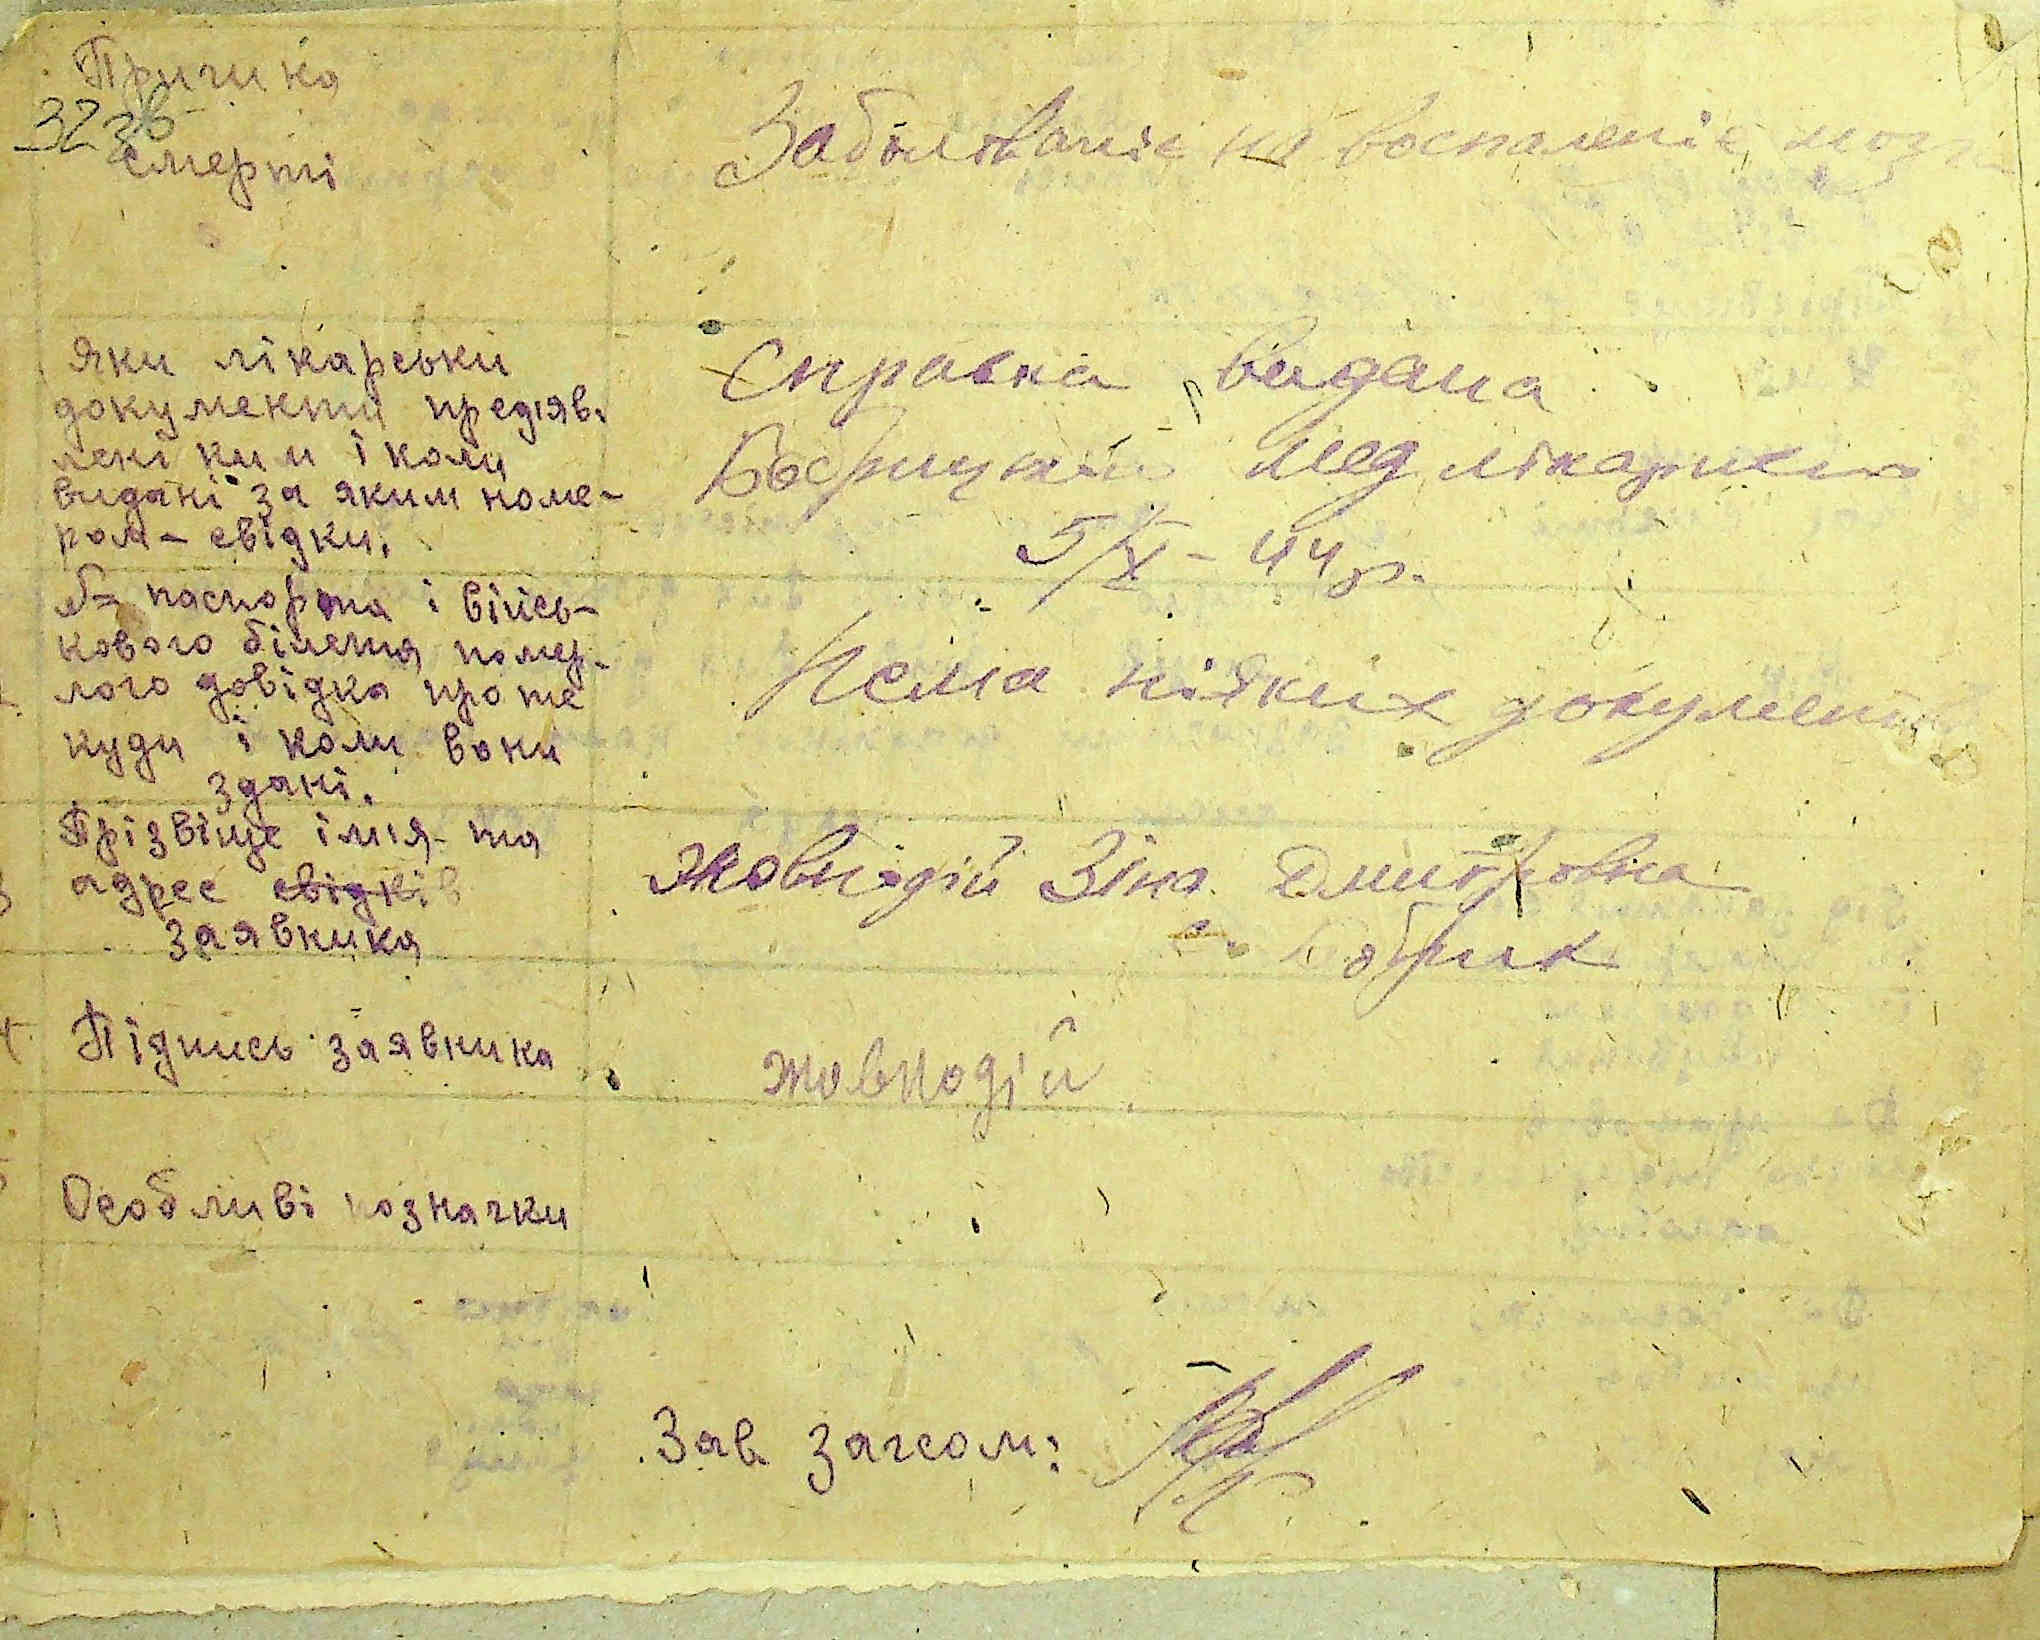 Причина
32 зв
смерті
Заболіваніє на воспаленіє мозг
Яки лікарськи
документи предіяв-
лені ким і коли
видані за яким номе-
ром - свідки.
Справка видана
Бобрицким Мед лікарием
5/XI - 44 р.
№ паспорта і війсь-
кового білета помер-
лого довідка про те
куди і коли вони
здані.
Нема ніяких документ
Прізвіще імія та
адрес свідків
заявника
Жовнодій Зіна Дмитровна
с. Бобрик
Підпись заявника
Жовнодій
Особливі позначки
Зав загсом: